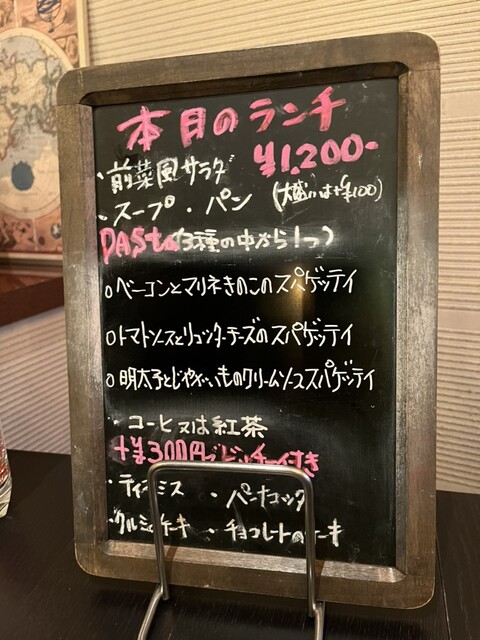 本日のランチ
¥1,200-
・前菜風サラダ
・スープ・パン (大盛りは+¥100)
PASta(3種の中から1つ)
○ベーコンとマリネきのこのスパゲッティ
○トマトソースとリコッターチーズのスパゲッティ
○明太子とじゃがいものクリームソーススパゲッティ
・コーヒー又は紅茶
+¥300円でドルチェ付き
・ティラミス ・パンナコッタ
・クルミのケーキ ・チョコレートのケーキ